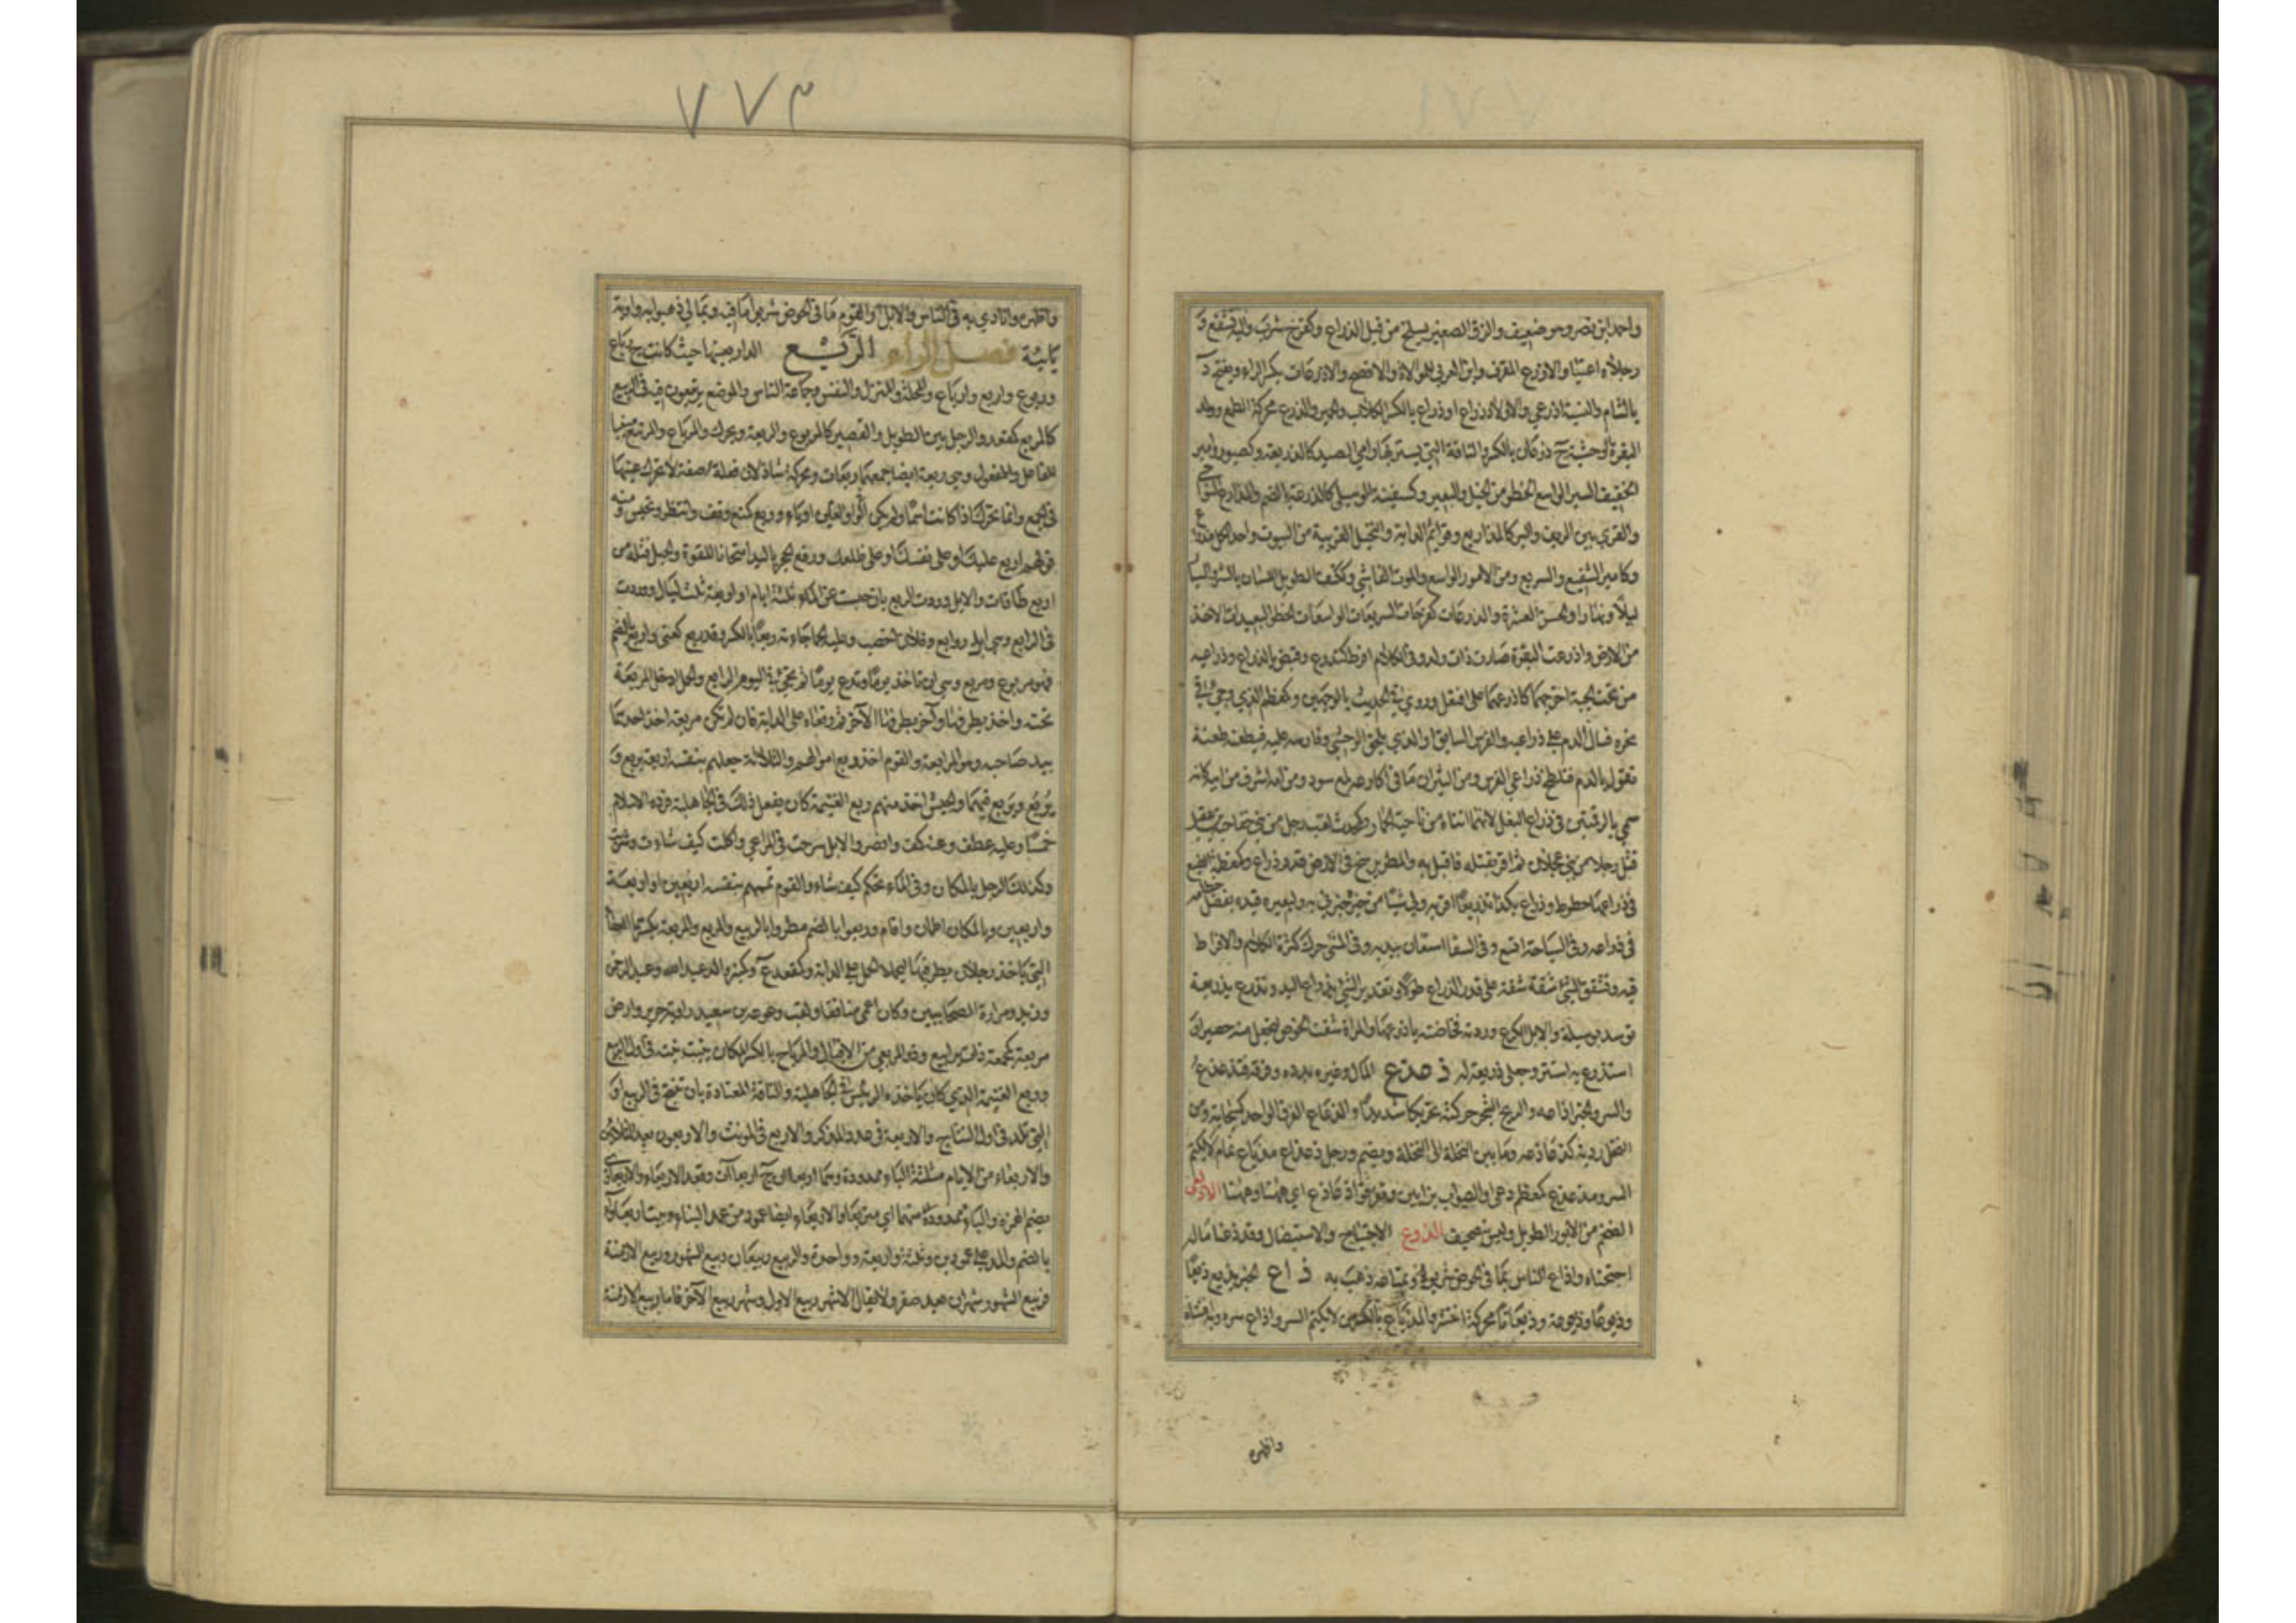 واحمد ابن نصر وهو ضعيف والزق الصغير يسلخ من قبل الذراع وكفرح شرب واليه تشفع و
رجلاه اعيتا والاذرع المقرف وابن العربي للمولاة والافصح والاذرعات بكسر الراء ويفتح د
بالشام والنسبة اذرعي واولاد ذراع او ذراع بالكسر الكلاب والحمير والذرع محركة الطمع وولد
البقرة الوحشية ج ذرعان بالكسر والناقة التي يستتر بها رامي الصيد كالذريعة وكصبور وامير
الخفيف السير الواسع الخطو من الخيل والبعير وكسفينة الوسيلة كالذرعة بالضم والمذارع النواحي
والقرى بين الريف والبر كالمذاريع وقوائم الدابة والنخيل القريبة من البيوت واحد الكل مذراع
وكامير الشفيع والسريع ومن الامور الواسع والموت الفاشي وككتف الطويل اللسان بالشر والسيار
ليلا ونهارا والحسن العشرة والذرعات كفرحات السريعات الواسعات الخطو البعيدات الاخذ
من الارض واذرعت البقرة صارت ذات ولد وفي الكلام افرط كتذرع وقبض بالذراع وذراعيه
من تحت الجبة اخرجهما كاذرعهما على افتعل وروي في الحديث بالوجهين وكمعظم الذي وجئ في
نحره فسال الدم على ذراعيه والفرس السابق او الذي يلحق الوحشي وفارسه عليه فيطعنه طعنة
تفور بالدم فتلطخ ذراعي الفرس ومن الثيران ما في اكارعه لمع سود ومن امه اشرف من ابيه كانه
سمي بالرقمتين في ذراع البغل لانهما اتتاه من ناحية الحمار وكمحدث لقب رجل من بني خفاجة بن عقيل
قتل رجلا من بني عجلان ثم اقر بقتله فاقيد به والمطر يرسخ في الارض قدر ذراع وكمعظمة الضبع
في ذراعها خطوط وذرع بكذا تذريعا اقر به ولي شيئا من خبره خبرني به ولبعيره قيده بفضل خطامه
في ذراعه وفي السباحة اتسع وفي السقا استعان بيديه وفي المشي حرك كثرة الكلام والافراط
فيه وتشقق الشيء شقة شقة على قدر الذراع طولا وتقدير الشيء بذراع اليد وتذرع بذريعة
توسل بوسيلة والابل الكرع وردته فخاضته باذرعها والمراة شقت الخوص لتجعل منه حصيرا و
استذرع به استتر وجعله ذريعة له ذ عذع المال وغيره بدده وفرقه فتذعذع
والسر والخبر اذاعه والريح الشجر حركته تحريكا شديدا والذعاع الفرق الواحد كسحابة ومن
النخل رديئه كذعاذعه وما بين النخلة الى النخلة ويضم ورجل ذعذاع مذياع نمام لا يكتم
السر ومذعذع كمعظم دعي او الصواب بزايين وتفرقوا ذعاذع اي ههنا وههنا الاذلعي
الضخم من الايور الطويل وليس بتصحيف الذوع الاجتياح والاستيصال وقد ذعنا ماله
اجتحناه واذاع الناس بما في الحوض شربوه وبمتاعه ذهب به ذ اع الخبر يذيع ذيعا
وذيوعا وذيعوعة وذيعانا محركة انتشر والمذياع بالكسر من لا يكتم السر واذاع سره وبه افشاه
واظهره
٧٧٣
واظهره وانادى به في الناس والابل او القوم ما في الحوض شربوا ما فيه وبمالي ذهبوا به واوية
يائية فصل الراء الربع الدار بعينها حيث كانت ج رباع
وربوع واربع وارباع والمحلة والمنزل والنعش وجماعة الناس والموضع يرتبعون فيه في الربيع
كالمربع كمقعد والرجل بين الطويل والقصير كالمربوع والربعة ويحرك والمرباع والمرتبع مبنيا
للفاعل والمفعول وهي ربعة ايضا جمعهما ربعات ومحركة شاذ لان فعلة صفة لا تحرك عينها
في الجمع وانما تحرك اذا كانت اسما ولم يكن العين واوا او ياء وربع كمنع وقف وانتظر وتحبس ومنه
قولهم اربع عليك او على نفسك او على ظلعك ورفع الحجر باليد امتحانا للقوة والحبل فتله من
اربع طاقات والابل وردت الربع بان حبست عن الماء ثلثة ايام او اربعة ثلث ليال ووردت
في الرابع وهي ابل روابع وفلان اخصب وعليه الحمى جاءته ربعا بالكسر وقد ربع كعني واربع بالضم
فهو مربوع ومربع وهي ان تاخذ يوما وتدع يومين ثم تجيء في اليوم الرابع والحمل ادخل المربعة
تحته واخذ بطرفها وآخر بطرفها الآخر ثم رفعاه على الدابة فان لم تكن مربعة اخذ احدهما
بيد صاحبه وهو المرابعة والقوم اخذ ربع اموالهم والثلاثة جعلهم بنفسه اربعة يربع و
يربع ويربع فيهما والجيش اخذ منهم ربع الغنيمة كان يفعل ذلك في الجاهلية فرده الاسلام
خمسا وعليه عطف وعنه كف واقصر والابل سرحت في المرعى واكلت كيف شاءت وشربت
وكذلك الرجل بالمكان وفي الماء تحكم كيف شاء والقوم تممهم بنفسه اربعين او اربعة
واربعين وبالمكان اطمأن واقام وربعوا بالضم مطروا بالربيع والمربع والمربعة بكسرهما العصا
التي ياخذ رجلان بطرفيها ليحملا الحمل على الدابة وكمقعد ع وكمنبر والد عبد الله وعبد الرحمن
وزيد ومرارة الصحابيين وكان اعمى منافقا ولقب وعوعة بن سعيد راوية جرير وارض
مربعة كمجمعة ذات يرابيع وذو المربعي من الاقيال والمرباع بالكسر المكان ينبت نبته في اول الربيع
وربع الغنيمة الذي كان ياخذه الرئيس في الجاهلية والناقة المعتادة بان تنتج في الربيع او
التي تلد في اول النتاج والاربعة في عدد المذكر والاربع في المونث والاربعون بعد الثلاثين
والاربعاء من الايام مثلثة الباء ممدودة وهما اربعاآن ج اربعاآت وقعد الاربعاء والاربعاوى
بضم الهمزة والباء ممدودة منهما اي متربعا والاربعاء ايضا عمود من عمد البناء وبيت اربعاواء
بالضم والمد على عمودين وثلثة واربعة وواحدة والربيع ربيعان ربيع الشهور وربيع الازمنة
فربيع الشهور شهران بعد صفر ولا يقال الا شهر ربيع الاول وشهر ربيع الآخر فاما ربيع الازمنة